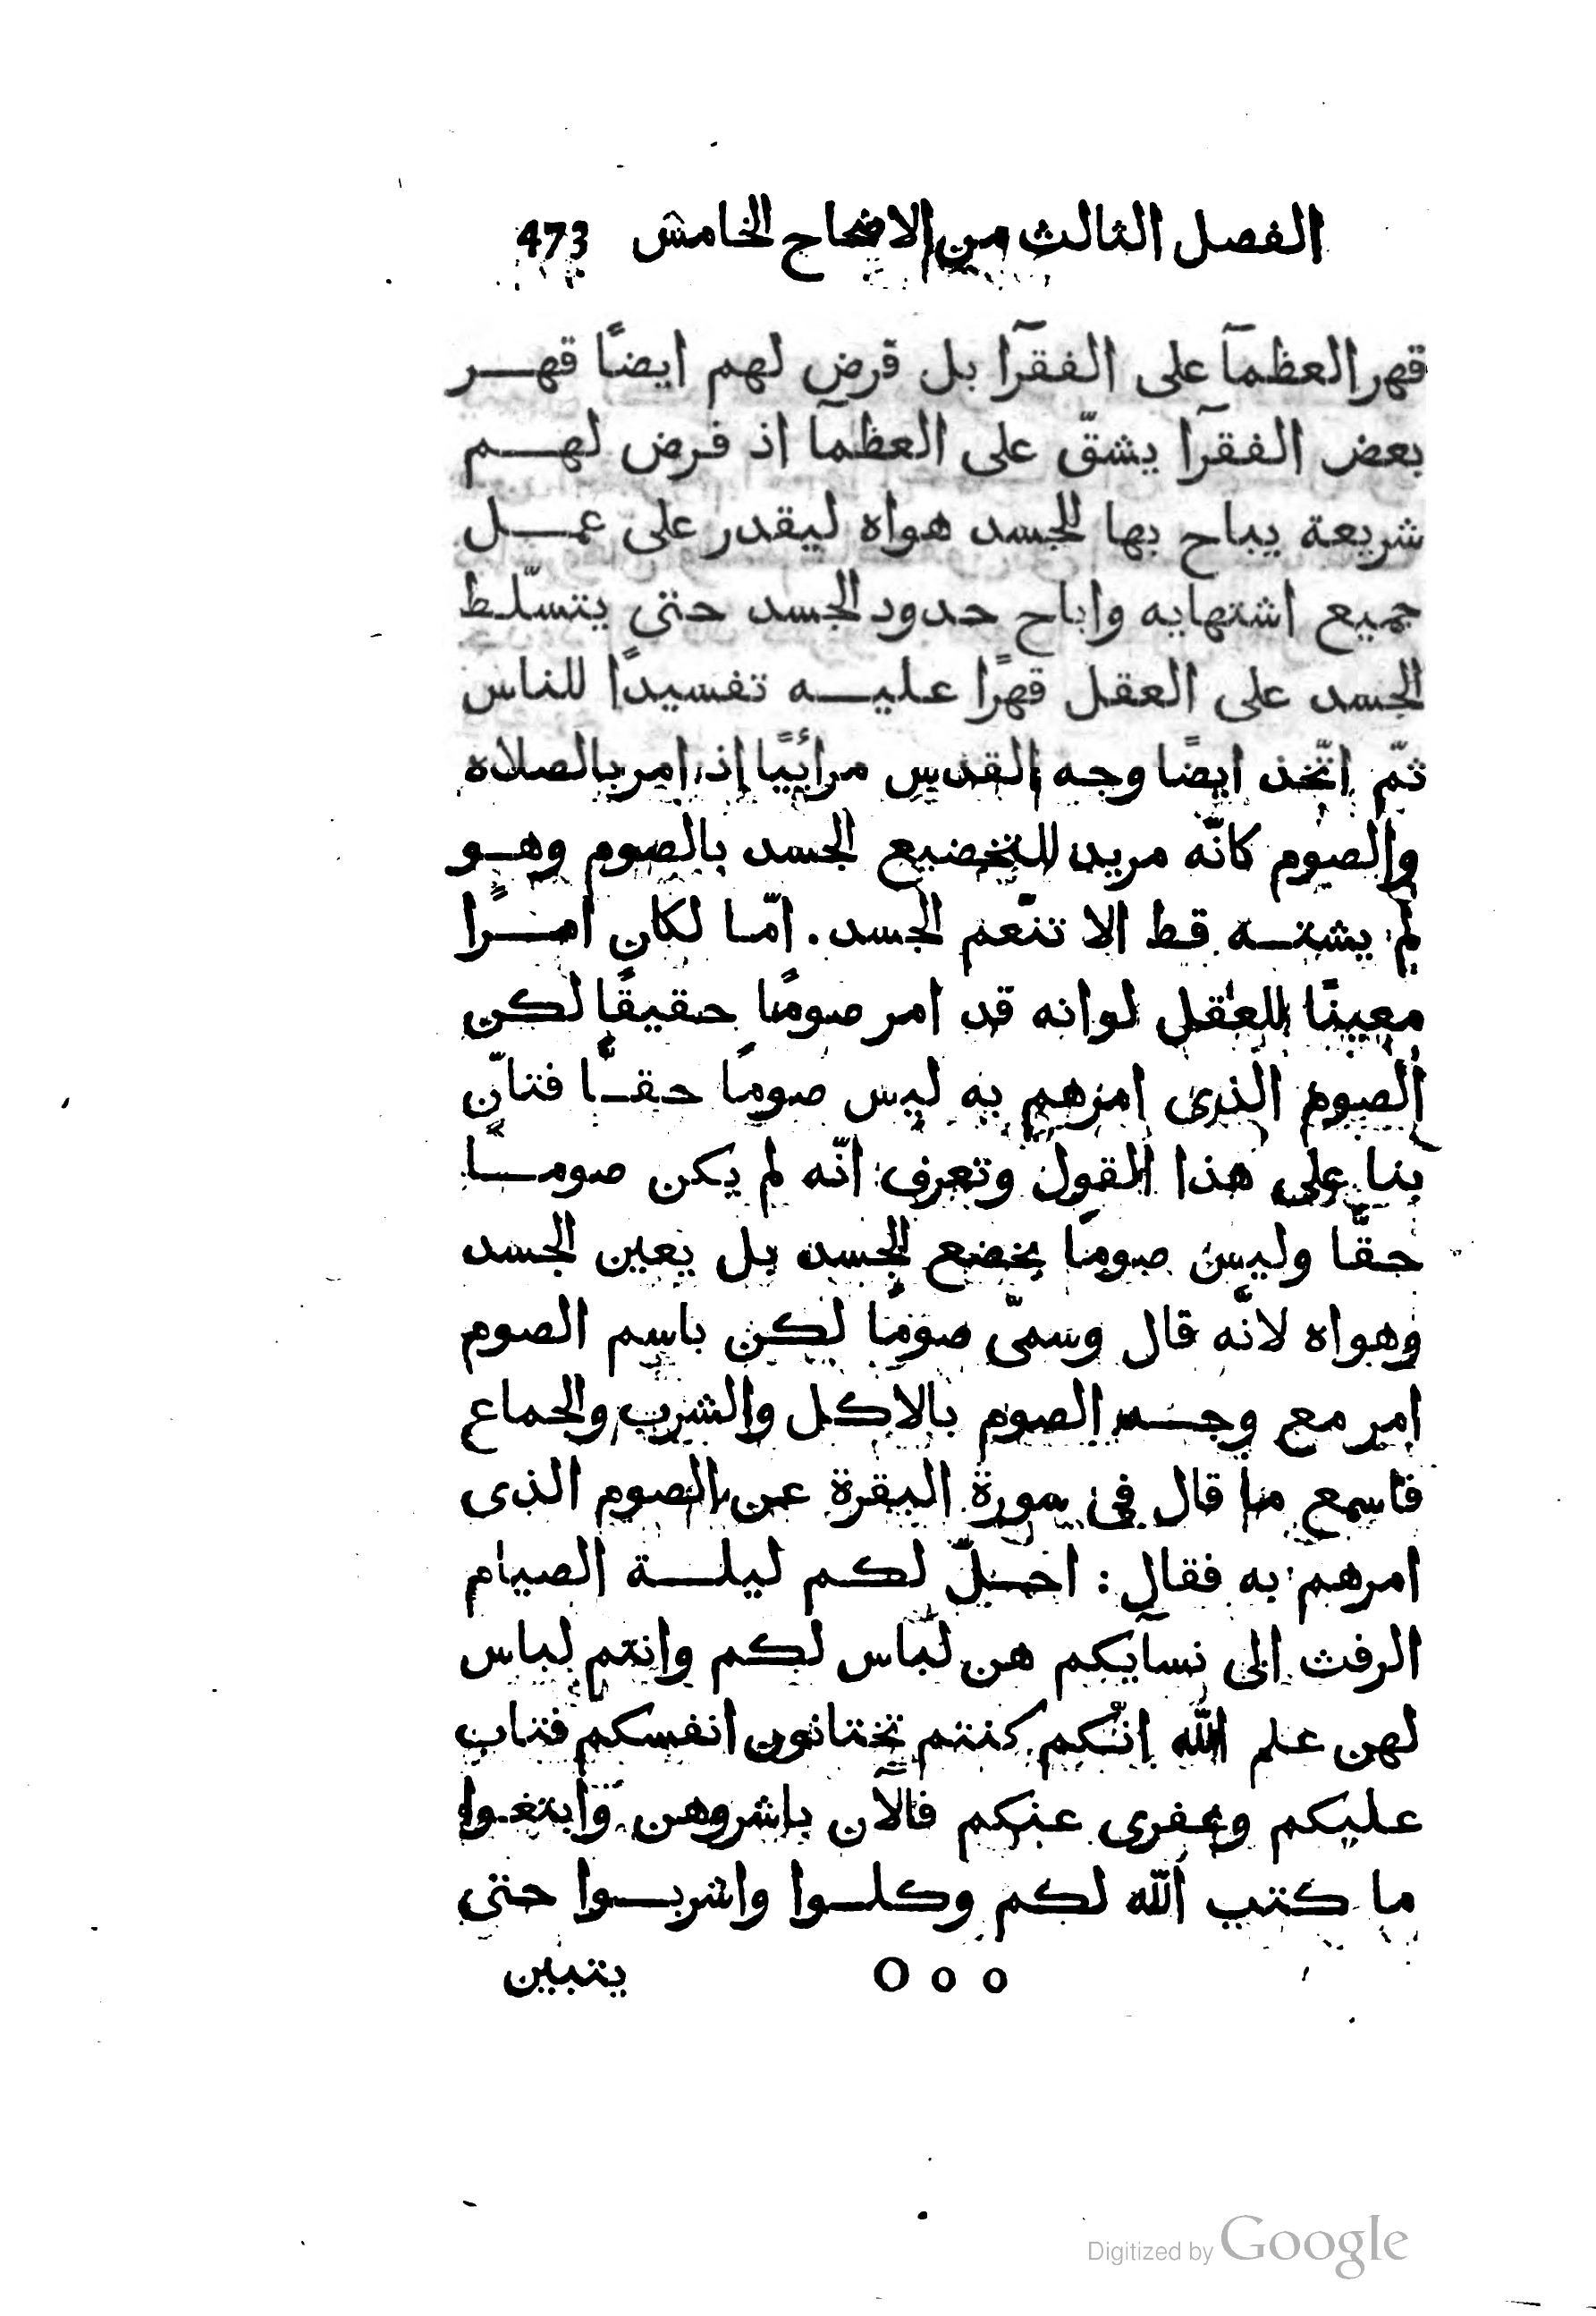 الفصل الثالث من الاضحاح الخامس 473
قهر العظمآ على الفقرآ بل فرض لهم ايضًا قهر
بعض الفقرآ يشقّ على العظمآ اذ فرض لهم
شريعة يباح بها للجسد هواه ليقدر على عمل
جميع اشتهايه واباح حدود الجسد حتى يتسلّط
الجسد على العقل قهرًا عليه تفسيدًا للناس
ثمّ اتّخذ ايضًا وجه القدس مرائيًا اذ امر بالصلاه
والصوم كانّه مريد للتخضيع الجسد بالصوم وهو
لم يشته قط الا تنّعم الجسد. امّا لكان امرًا
معينًا للعقل لو انه قد امر صومًا حقيقًا لكن
الصوم الذى امرهم به ليس صومًا حقًّا فتانّ
بنا على هذا القول وتعرف انّه لم يكن صومًا
حقًّا وليس صومًا يخضع الجسد بل يعين الجسد
وهواه لانّه قال وسمّى صومًا لكن باسم الصوم
امر مع وجه الصوم بالاكل والشرب والجماع
فاسمع ما قال فى سورة البقرة عن الصوم الذى
امرهم به فقال : احلّ لكم ليلة الصيام
الرفث الى نسآيكم هن لباس لكم وانتم لباس
لهن علم الله انّكم كنتم تختانون انفسكم فتاب
عليكم وعفرى عنكم فالآن باشروهن وابتغوا
ما كتب الله لكم وكلوا واشربوا حتى
يتبين
o o O
Digitized by Google